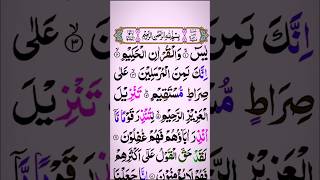 بِسْمِ اللّٰهِ الرَّحْمٰنِ الرَّحِيْمِ
يٰسٓ ۚ وَالْقُرْاٰنِ الْحَكِيْمِ ۙ
اِنَّكَ لَمِنَ الْمُرْسَلِيْنَ ۙ عَلٰى
صِرَاطٍ مُّسْتَقِيْمٍ ۭ تَنْزِيْلَ
الْعَزِيْزِ الرَّحِيْمِ ۙ لِتُنْذِرَ قَوْمًا مَّآ
اُنْذِرَ اٰبَآؤُهُمْ فَهُمْ غٰفِلُوْنَ
لَقَدْ حَقَّ الْقَوْلُ عَلٰٓى اَكْثَرِهِمْ
فَهُمْ لَا يُؤْمِنُوْنَ اِنَّا جَعَلْنَا